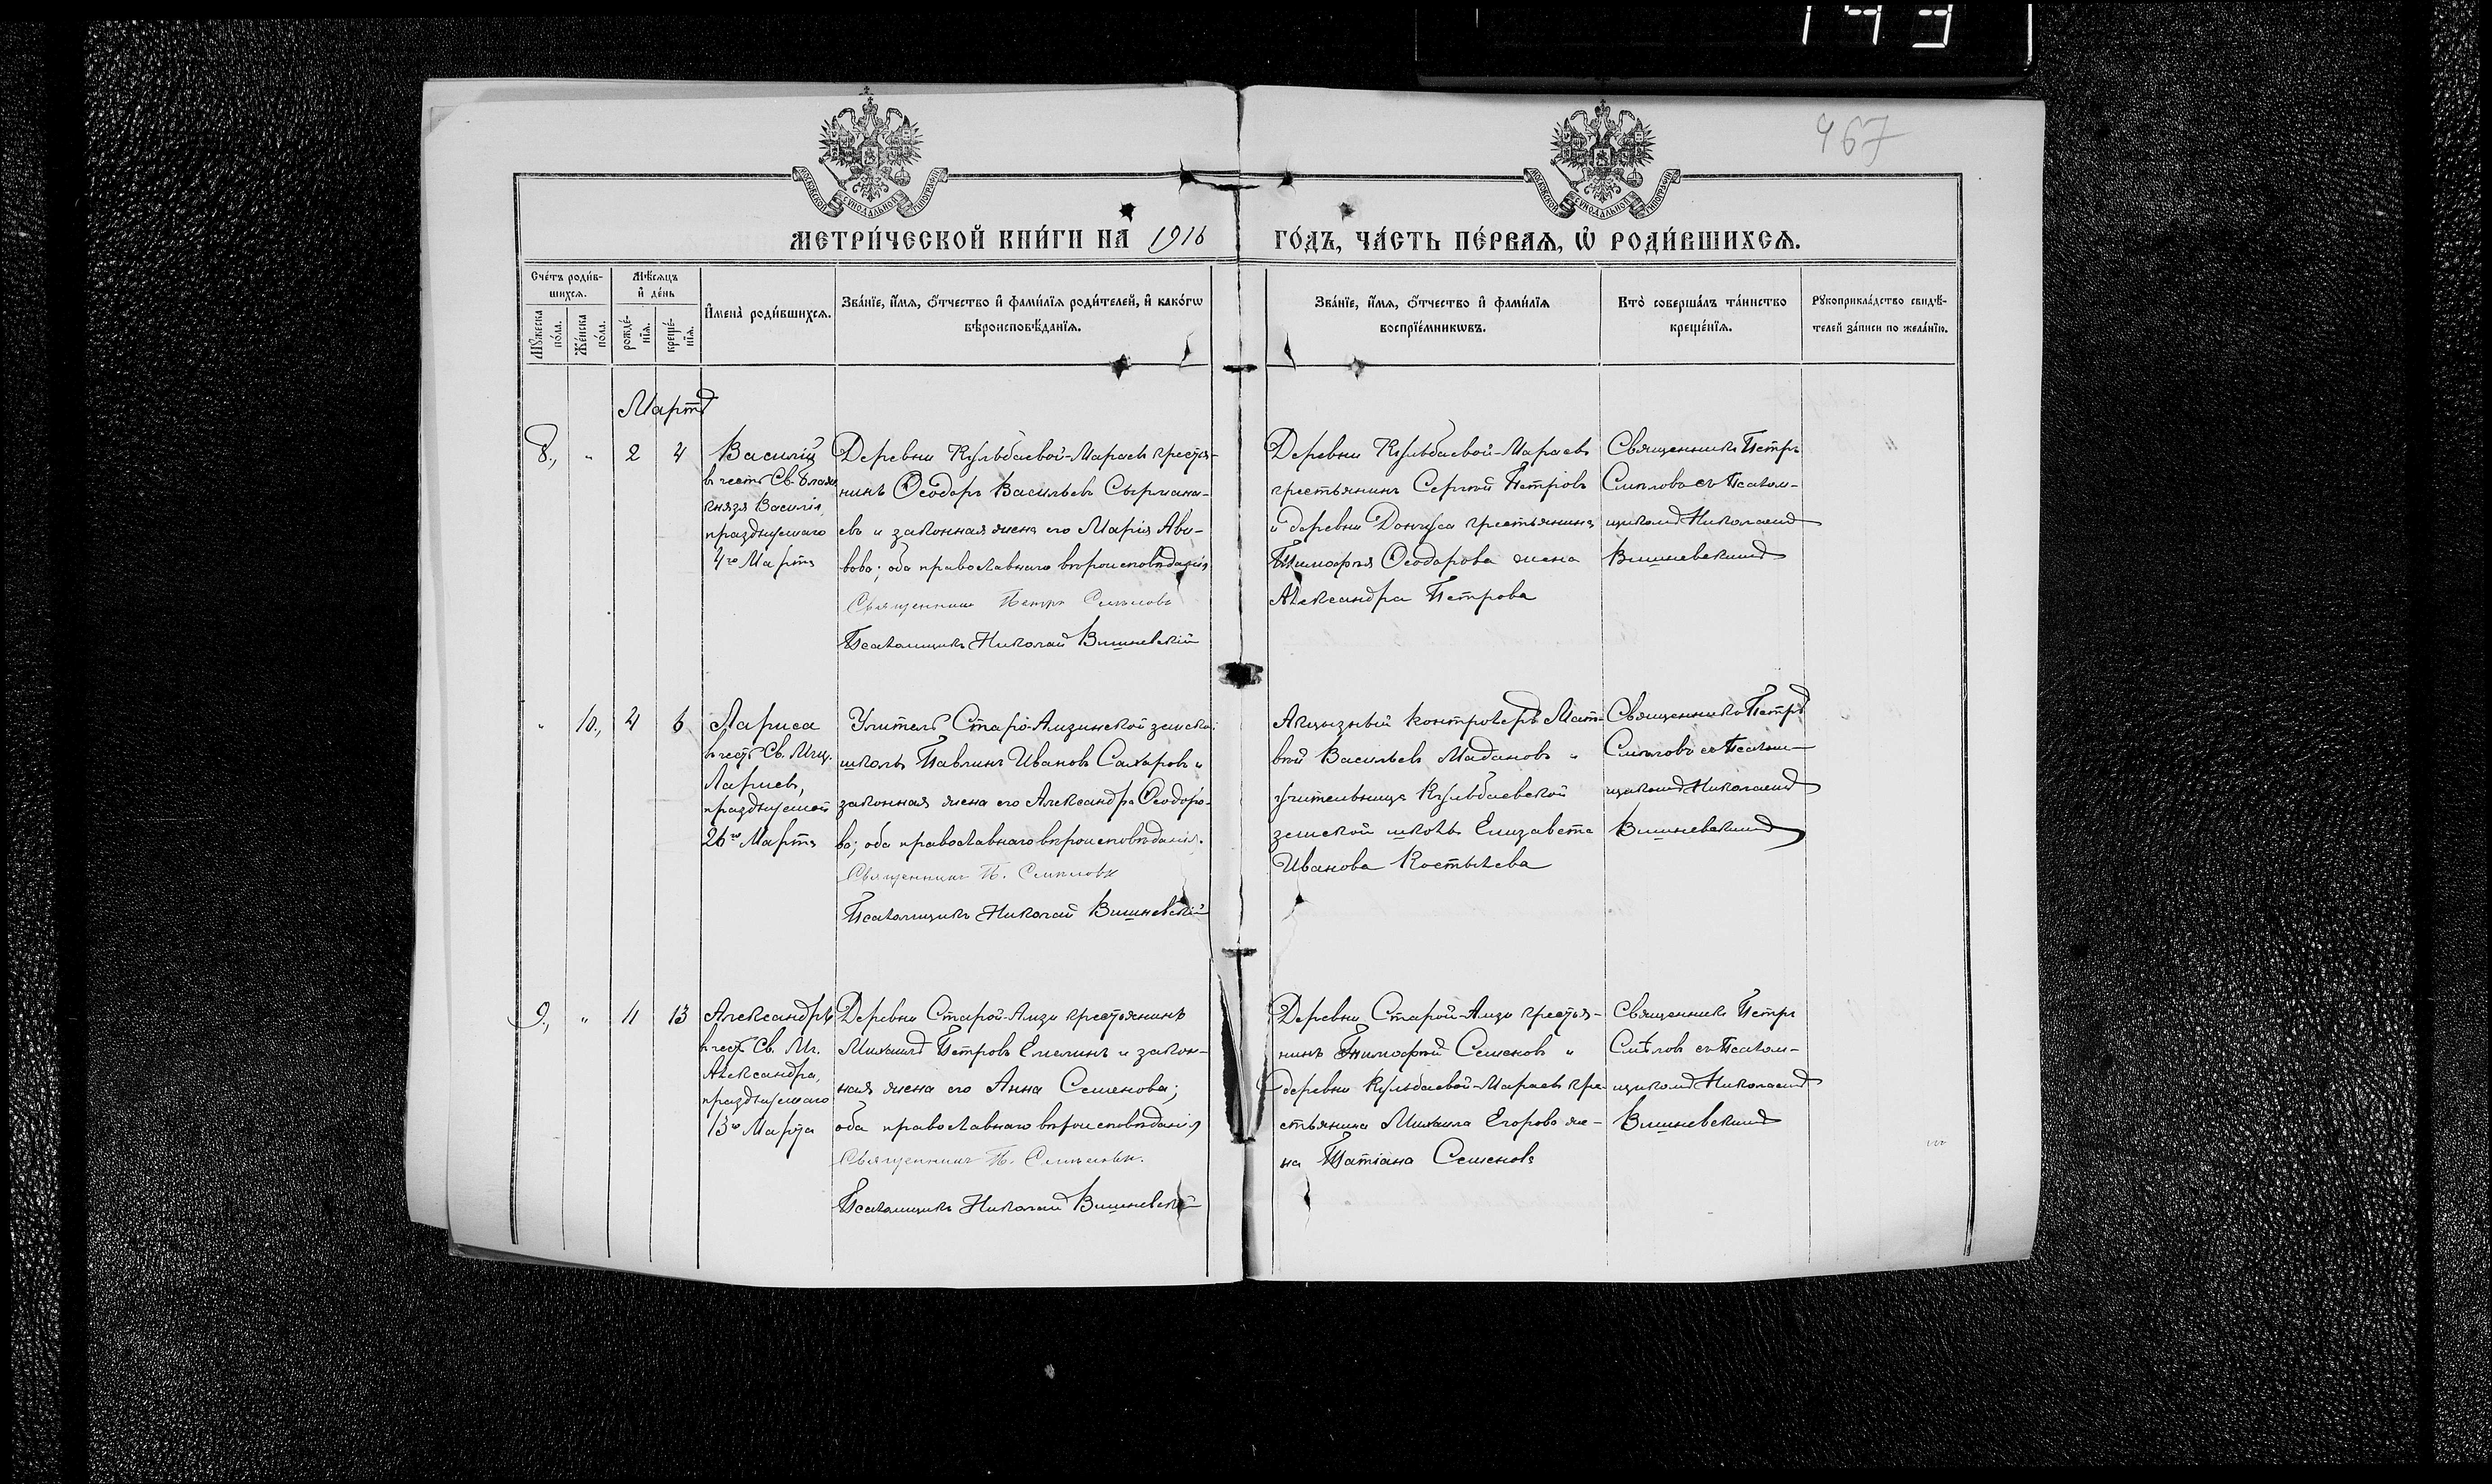 149
467
МОСКОВСКОЙ СѴНОДАЛЬНОЙ ТИПОГРАФІИ
МОСКОВСКОЙ СѴНОДАЛЬНОЙ ТИПОГРАФІИ
МЕТРИ́ЧЕСКОЙ КНИ́ГИ НА 1916
ГО́ДЪ, ЧА́СТЬ ПЕ́РВАѦ, Ѡ҆ РОДИ́ВШИХСѦ.
Сче́тъ роди́в-
шихсѧ.
Мѣ́сѧцъ
и҆ де́нь
Мꙋ́жеска
по́ла.
Же́нска
по́ла.
рожде́-
нїѧ.
креще́-
нїѧ.
И҆мена̀ роди́вшихсѧ.
Зва́нїе, и҆́мѧ, ѻ҆́тчество и҆ фами́лїѧ роди́телей, и҆ како́гѡ
вѣроисповѣ́данїѧ.
Зва́нїе, и҆́мѧ, ѻ҆́тчество и҆ фами́лїѧ
воспрїе́мникѡвъ.
Кто̀ соверша́лъ та́инство
креще́нїѧ.
Рꙋкоприкла́дство свидѣ́-
телей за́писи по жела́нїю.
Мартъ
8., " 2 4
Василій
въ честь Св. Благов.
князя Василія,
празднуемаго
4го Марта
Деревни Кульбаевой-Мараcы крестья-
нинъ Ѳеодоръ Васильевъ Сырмана-
евъ и законная жена его Марія Авк-
вова; оба православнаго вѣроисповѣданія
Священникъ Петръ Смѣловъ
Псаломщикъ Николай Вишневскій
Деревни Кульбаевой-Марасы
крестьянинъ Сергѣй Петровъ
и деревни Донгуса крестьянина
Тимофея Ѳеодорова жена
Александра Петрова
Священникъ Петръ
Смѣловъ съ Псалом-
щикомъ Николаемъ
Вишневскимъ
" 10., 4 6
Лариса
въ честь Св. Мчц.
Ларисы,
празднуемой
26го Марта
Учитель Старо-Амзинской земской
школы Павлинъ Ивановъ Сахаровъ и
законная жена его Александра Ѳеодоро-
ва; оба православнаго вѣроисповѣданія.
Священникъ П. Смѣловъ
Псаломщикъ Николай Вишневскій
Акцизный контролеръ Мат-
вѣй Васильевъ Мадановъ и
учительница Кульбаевской
земской школы Елизавета
Иванова Костылева
Священникъ Петръ
Смѣловъ съ Псалом-
щикомъ Николаемъ
Вишневскимъ
9., " 11 13
Александръ
въ честь Св. Мч.
Александра,
празднуемаго
13го Марта
Деревни Старой-Амзи крестьянинъ
Михаилъ Петровъ Емелинъ и закон-
ная жена его Анна Семенова;
оба православнаго вѣроисповѣданія
Священникъ П. Смѣловъ.
Псаломщикъ Николай Вишневскій
Деревни Старой-Амзи крестья-
нинъ Тимофей Семеновъ и
деревни Кульбаевой-Марасы кре-
стьянина Михаила Егорова же-
на Татіана Семенова
Священникъ Петръ
Смѣловъ съ Псалом-
щикомъ Николаемъ
Вишневскимъ